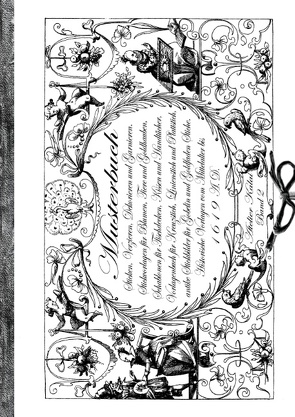 Musterbuch
Sticken, Verzieren, Dekorieren und Garnieren.
Stickvorlagen für Blumen, Tiere und Goldhauben,
Schablonen für Tischdecken, Kissen und Handtücher,
Vorlagenbuch für Kreuzstich, Leinenstich und Plattstich,
antike Stickbilder für Gobelin und Goldfaden Stiche.
Historische Vorlagen vom Mittelalter bis
1619 A.D.
Band 2